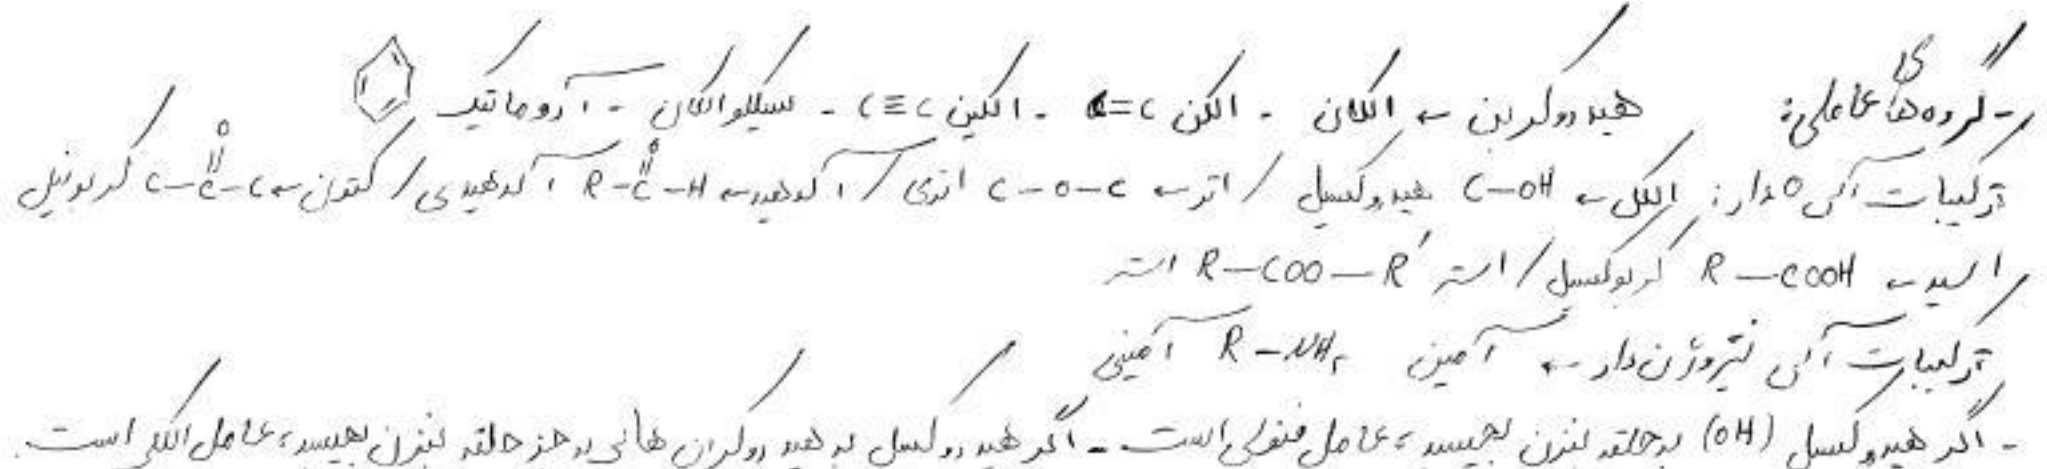 - گروه های عاملی: هیدروکربن ← الکان - الکن C=C - الکین C≡C - سیکلوالکان - آروماتیک
ترکیبات آلی O دار: الکل ← C-OH هیدروکسیل / اتر ← C-O-C اتری / آلدهید ← R-C-H آلدهیدی / کتون ← C-C-C کربونیل
O O
اسید ← R-COOH کربوکسیل / استر R-COO-R′ استر
ترکیبات آلی نیتروژن دار ← آمین R-NH₂ آمینی
- اگر هیدروکسیل (OH) به حلقه بنزن بچسبد، عامل فنولی است - اگر هیدروکسیل به هیدروکربن هائی به جز حلقه بنزن بچسبد، عامل الکلی است.